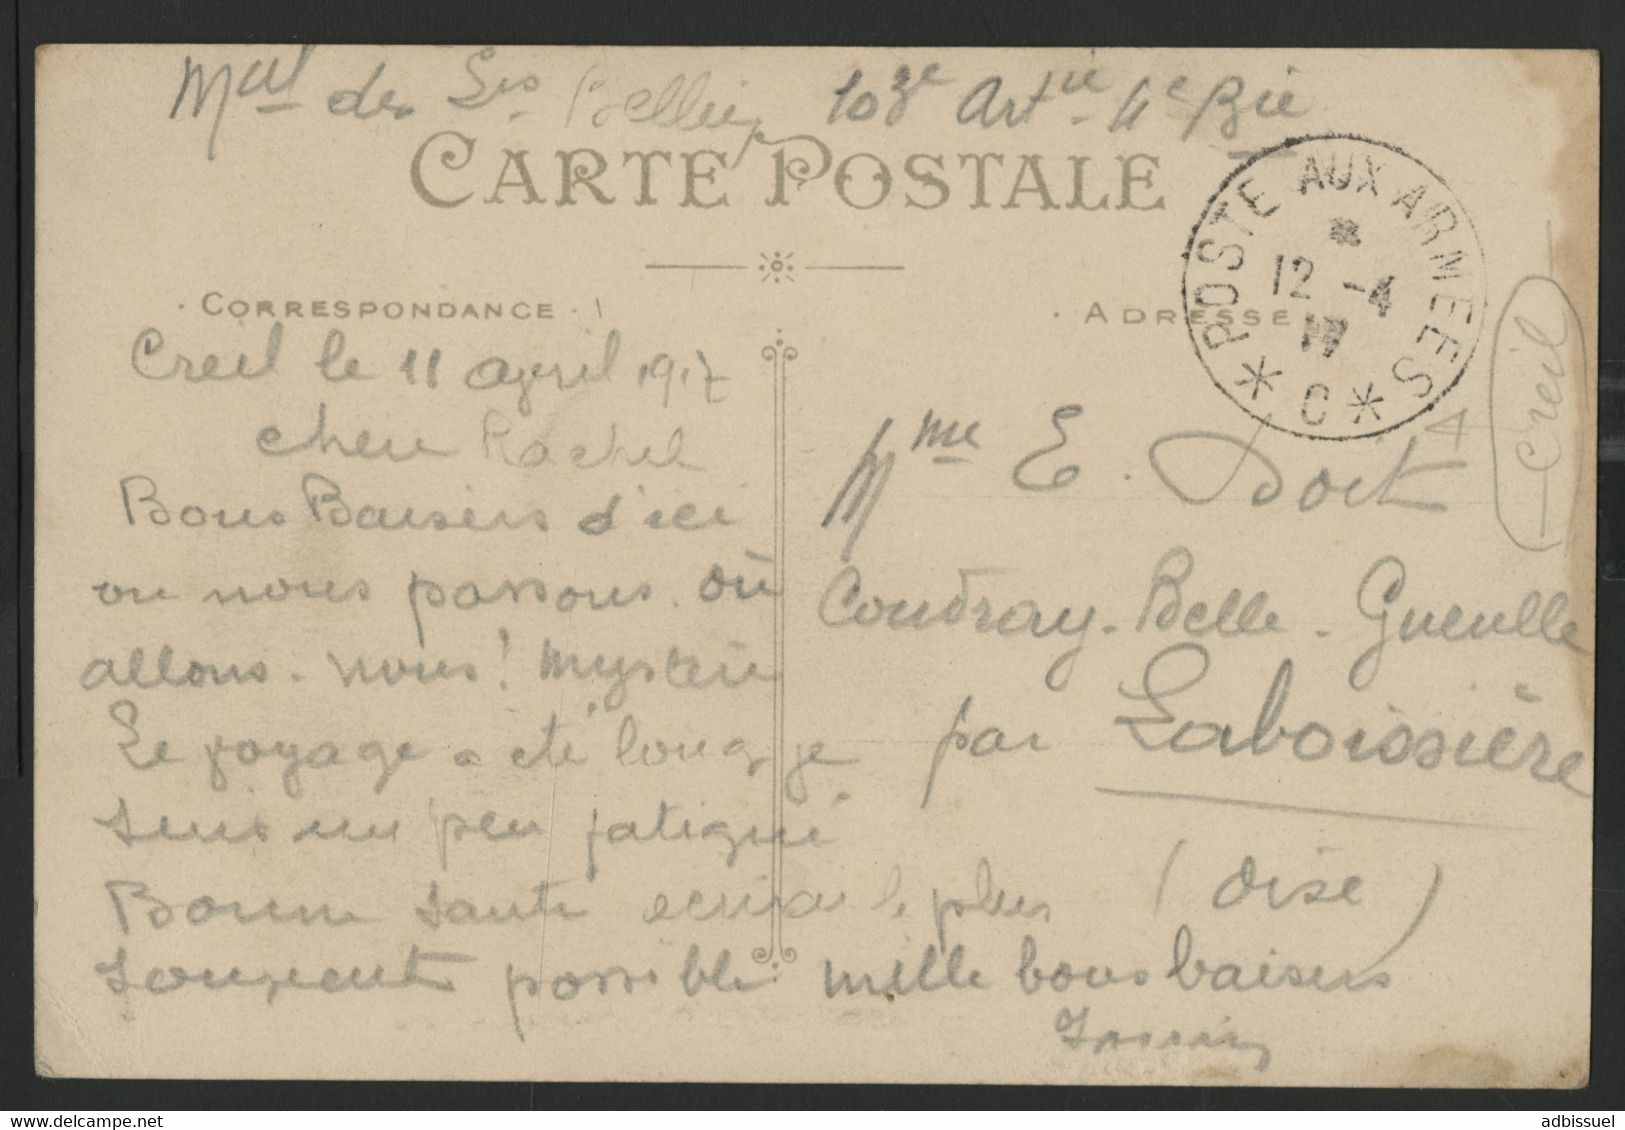 Mal des Lis 103e Artie 4e Bie
CARTE POSTALE
POSTE AUX ARMEES
12 -4
17
* C *
CORRESPONDANCE
ADRESSE
Creil
Creil le 11 avril 1917
chere Rachel
Bons Baisers d'ici
ou nous passons. où
allons-nous! mystère
Le voyage a été long je
suis un peu fatigué
Bonne santé ecrivez le plus
souvent possible mille bons baisers
Mme E. Doit
Coudray-Belle-Gueulle
par Laboissière
(Oise)
adbissuel